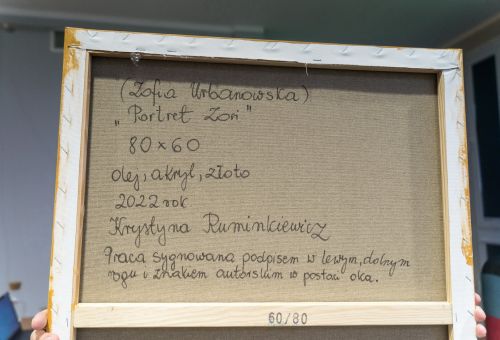 (Zofia Urbanowska)
„Portret Zosi"
80 × 60
olej, akryl, złoto
2022 rok
Krystyna Ruminkiewicz
Praca sygnowana podpisem w lewym, dolnym
rogu i znakiem autorskim w postaci oka.
60/80